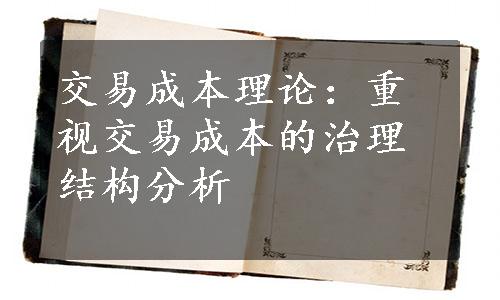 交易成本理论：重
视交易成本的治理
结构分析